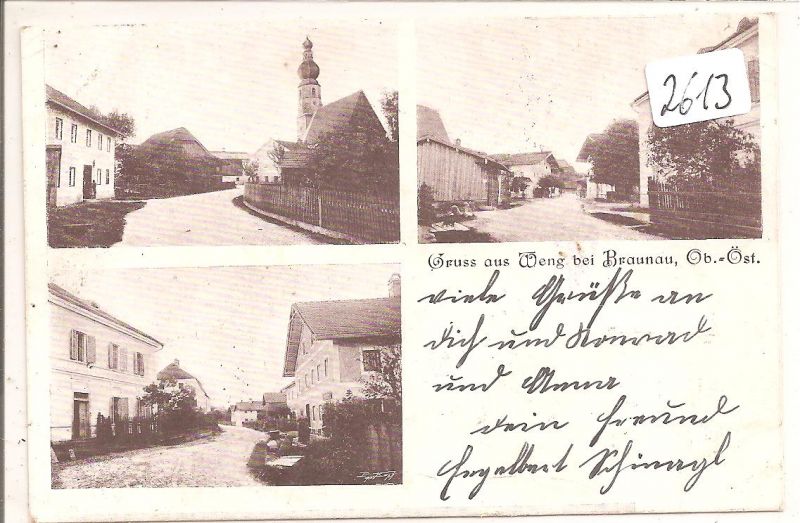 2613
Gruss aus Weng bei Braunau, Ob.-Öst.
viele Grüße an
dich und Konrad
und Anna
dein Freund
Engelbert Schinagl